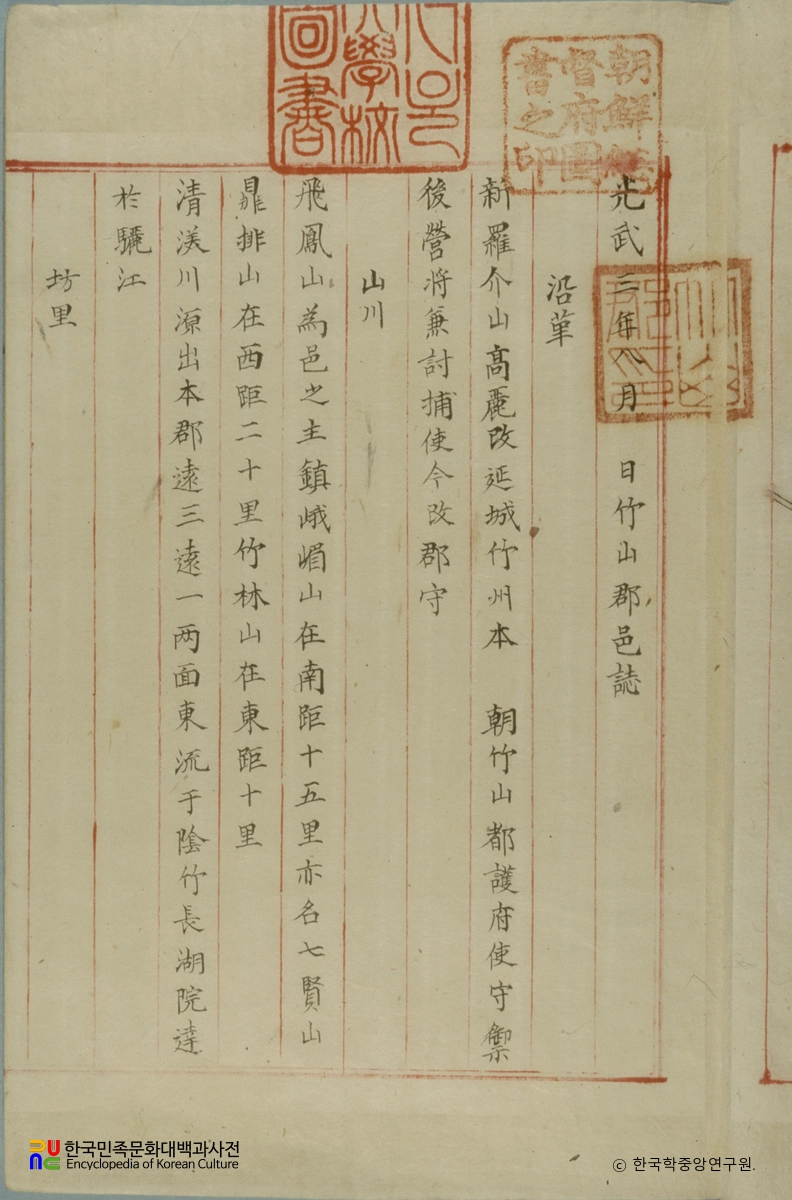 大學校
圖書
朝鮮總
督府圖
書之印
光武三年八月 日竹山郡邑誌
沿革
新羅介山高麗改延城竹州本 朝竹山都護府使守禦
後營将兼討捕使今改郡守
山川
飛鳳山為邑之主鎮峨嵋山在南距十五里亦名七賢山
鼎排山在西距二十里竹林山在東距十里
清渼川源出本郡遠三遠一两面東流于陰竹長湖院達
於驪江
坊里
한국민족문화대백과사전
Encyclopedia of Korean Culture
ⓒ 한국학중앙연구원.